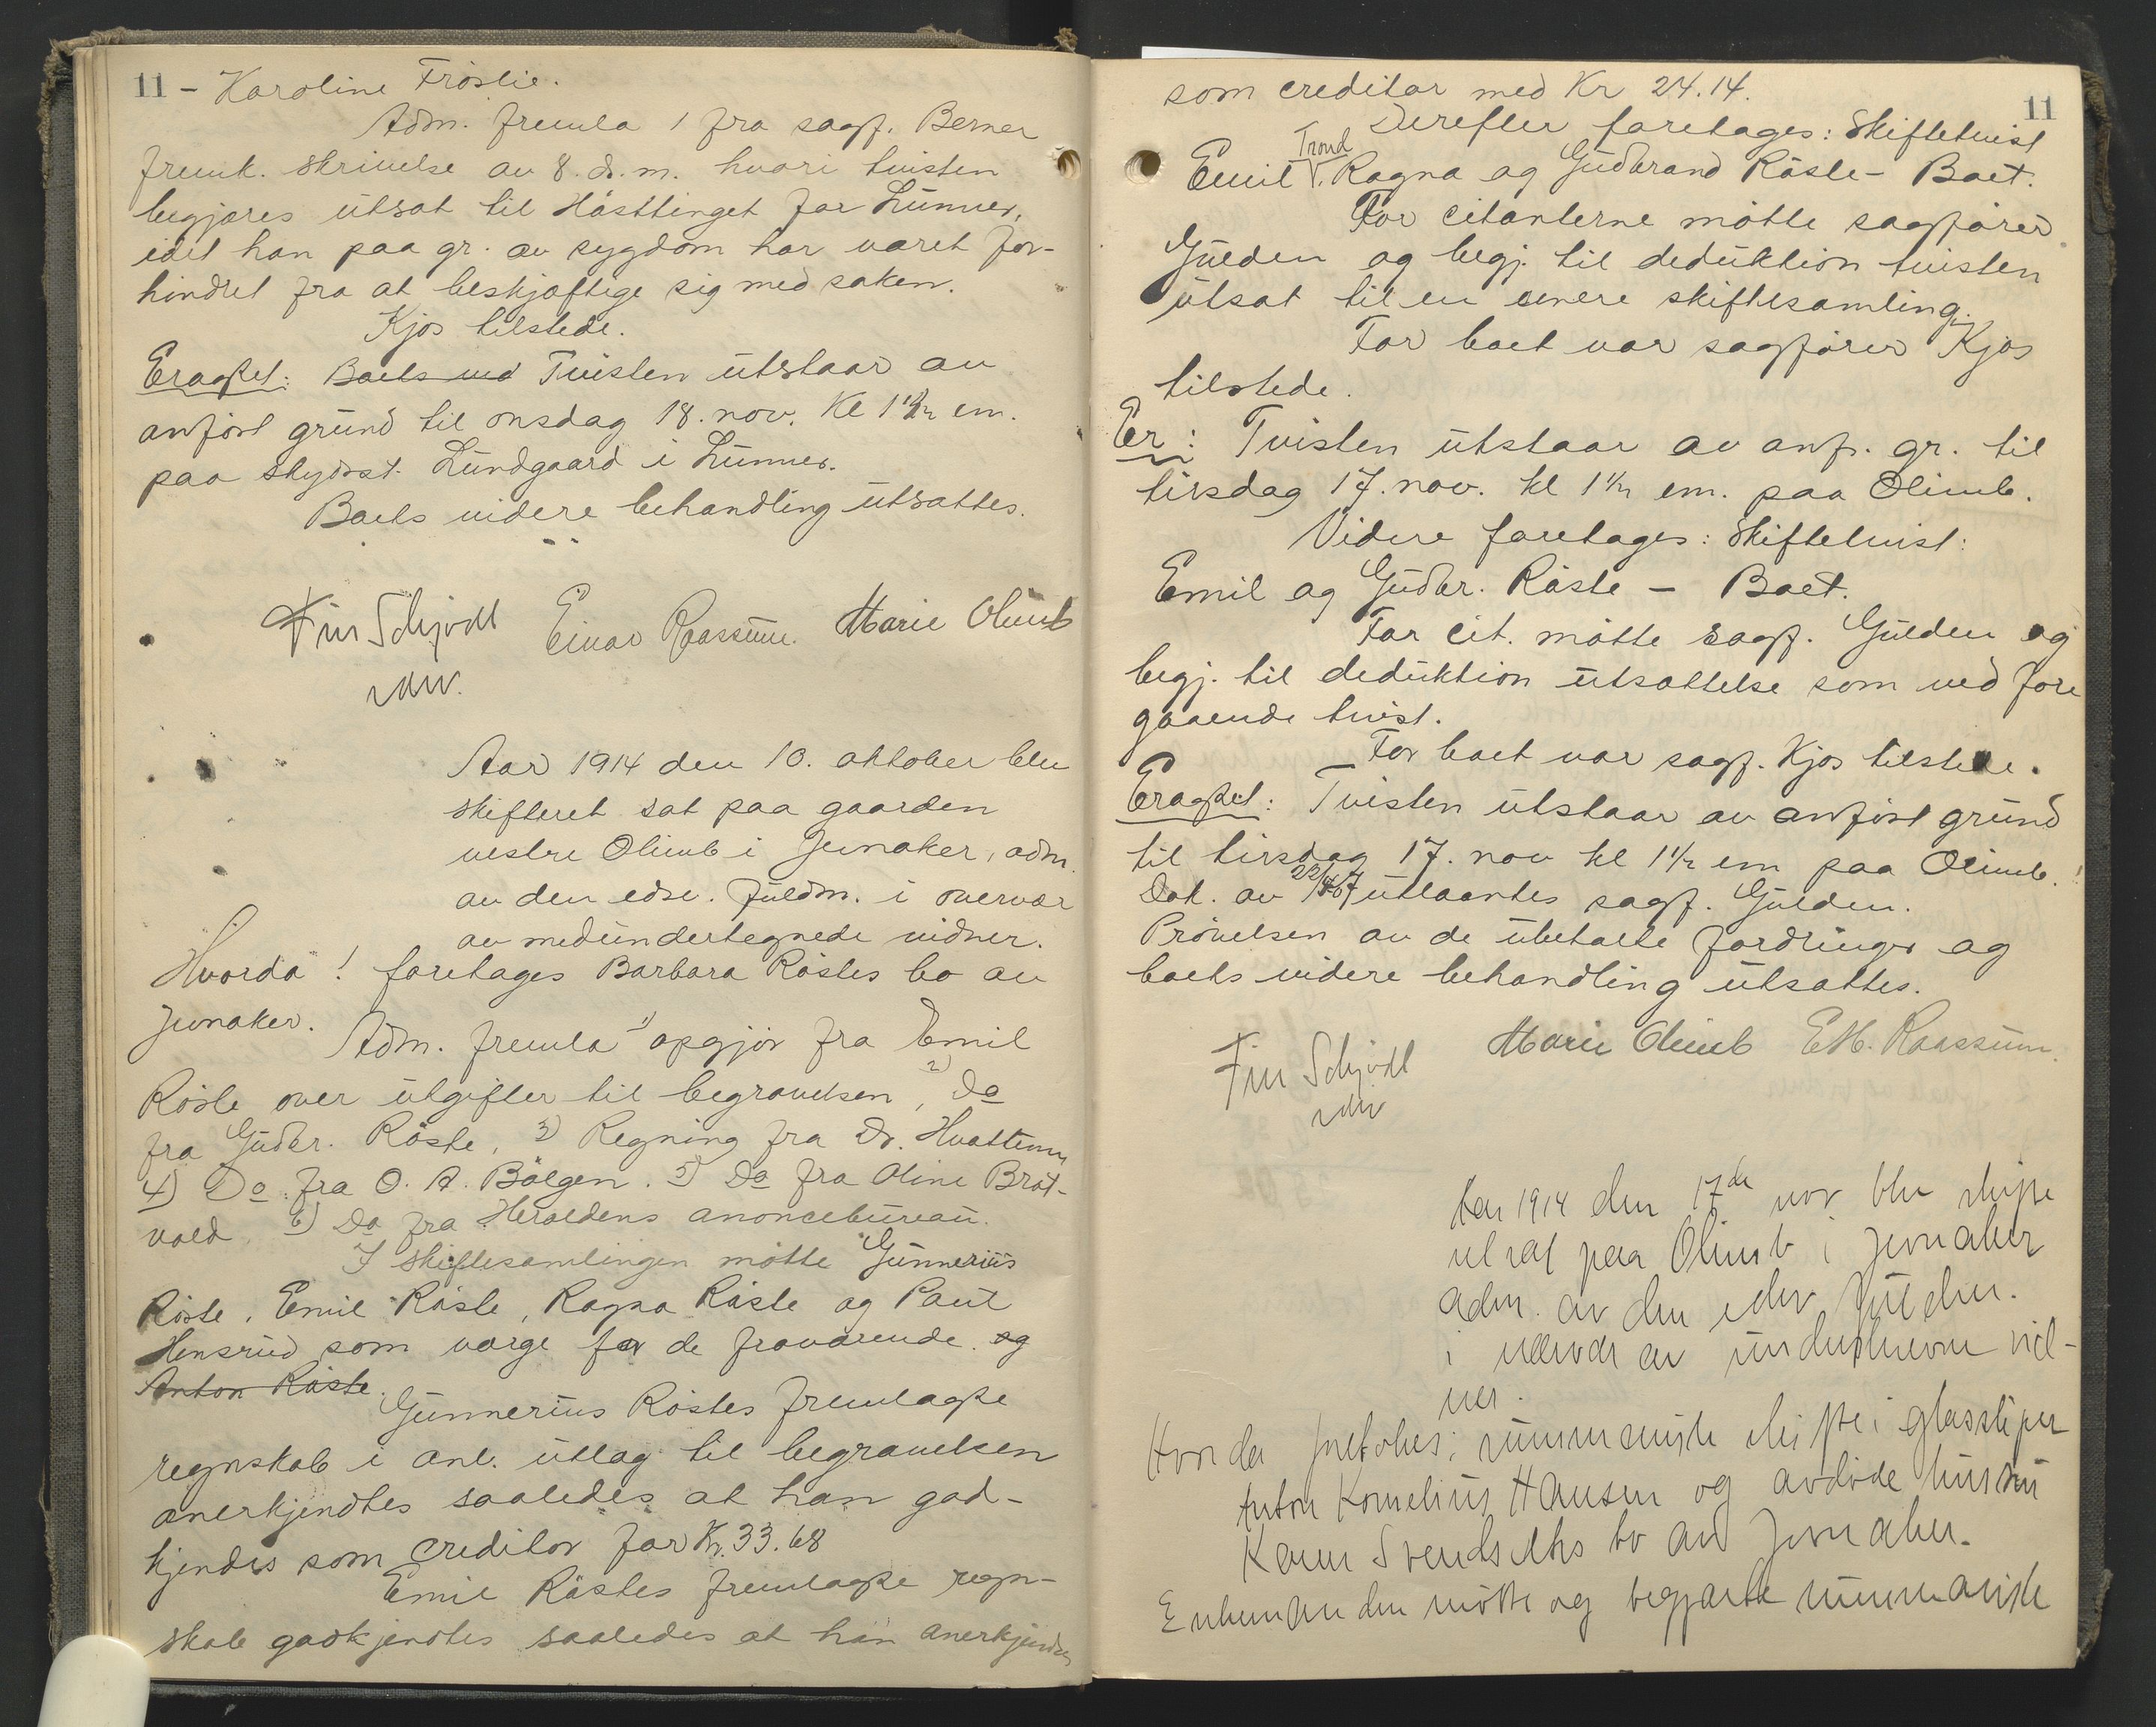 11 - Karoline Fröslie.
Adm. fremla 1 fra sagf. Berner
fremk. skrivelse av 8. d. m. hvori tvisten
begjæres utsat til Hösttinget for Lunner,
idet han paa gr. av sygdom har været for-
hindret fra at beskjæftige sig med saken.
Kjos tilstede.
Eragtet: Boets ved Tvisten utstaar av
anført grund til onsdag 18. nov. Kl 1 1/2 em.
paa skydsst. Lundgaard i Lunner.
Boets videre behandling utsattes.
Fin Schjödt Einar Raassum. Marie Olimb
Aar 1914 den 10. oktober blev
skifteret sat paa gaarden
vestre Olimb i Jevnaker, adm.
av den edsv. fuldm. i overvær
av medundertegnede vidner.
Hvorda! foretages Barbara Röstes bo av
Jevnaker.
Adm. fremla 1) opgjör fra Emil
Röste over utgifter til begravelsen, 2) Do
fra Gudbr. Röste, 3) Regning fra Dr. Hvattum
4) Do. fra O. A. Bölgen. 5) Do fra Oline Bröt-
vold, 6) Do fra Heroldens anoncebureau.
I skiftesamlingen mötte Gunnerius
Röste, Emil Röste, Ragna Röste og Paul
Hensrud som værge for de fraværende. og
Anton Röste.
Gunnerius Röstes fremlagte
regnskab i anl. utlæg til begravelsen
anerkjendtes saaledes at han god-
kjendes som creditor for Kr. 33.68
Emil Röstes fremlagte regn-
skab godkjendtes saaledes at han anerkjendes
11
som creditor med Kr 24.14.
Derefter foretages: Skiftetvist
Trond
Emil V. Ragna og Gudbrand Röste - Boet.
For citanterne mötte sagförer
Gulden og begj. til deduktion tvisten
utsat til en senere skiftesamling.
For boet var sagförer Kjos
tilstede.
Er: Tvisten utstaar av anf. gr. til
tirsdag 17. nov. kl 1 1/2 em. paa Olimb.
Videre foretages: Skiftetvist:
Emil og Gudbr. Röste - Boet.
For cit. mötte sagf. Gulden og
begj. til deduktion utsættelse som ved fore
gaaende tvist.
For boet var sagf. Kjos tilstede.
Eragtet: Tvisten utstaar av anfört grund
til tirsdag 17. nov kl 1 1/2 em paa Olimb.
Dok. av utlaantes sagf. Gulden.
Prövelsen av de ubetalte fordringer og
boets videre behandling utsattes.
Fin Schjödt Marie Olimb E.M. Raassum.
Aar 1914 den 17de nov blev skifte
ret sat paa Olimb i Jevnaker
adm. av den edsv fuldm.
i nærvær av underskrevne vid-
ner.
Hvorda foretokes: summarisk skifte i glassliper
Anton Kornelius Hansen og avdöde hustru
Karen Svendsens bo av Jevnaker.
Enkemanden mötte og begjærte summarisk